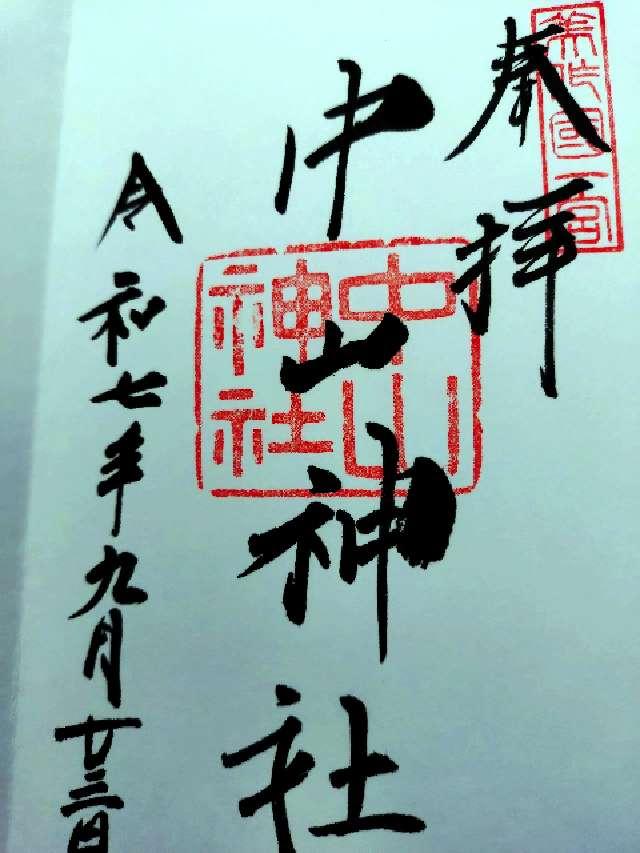 奉拝
美作國一宮
中山神社
中山神社
令和七年九月廿三日